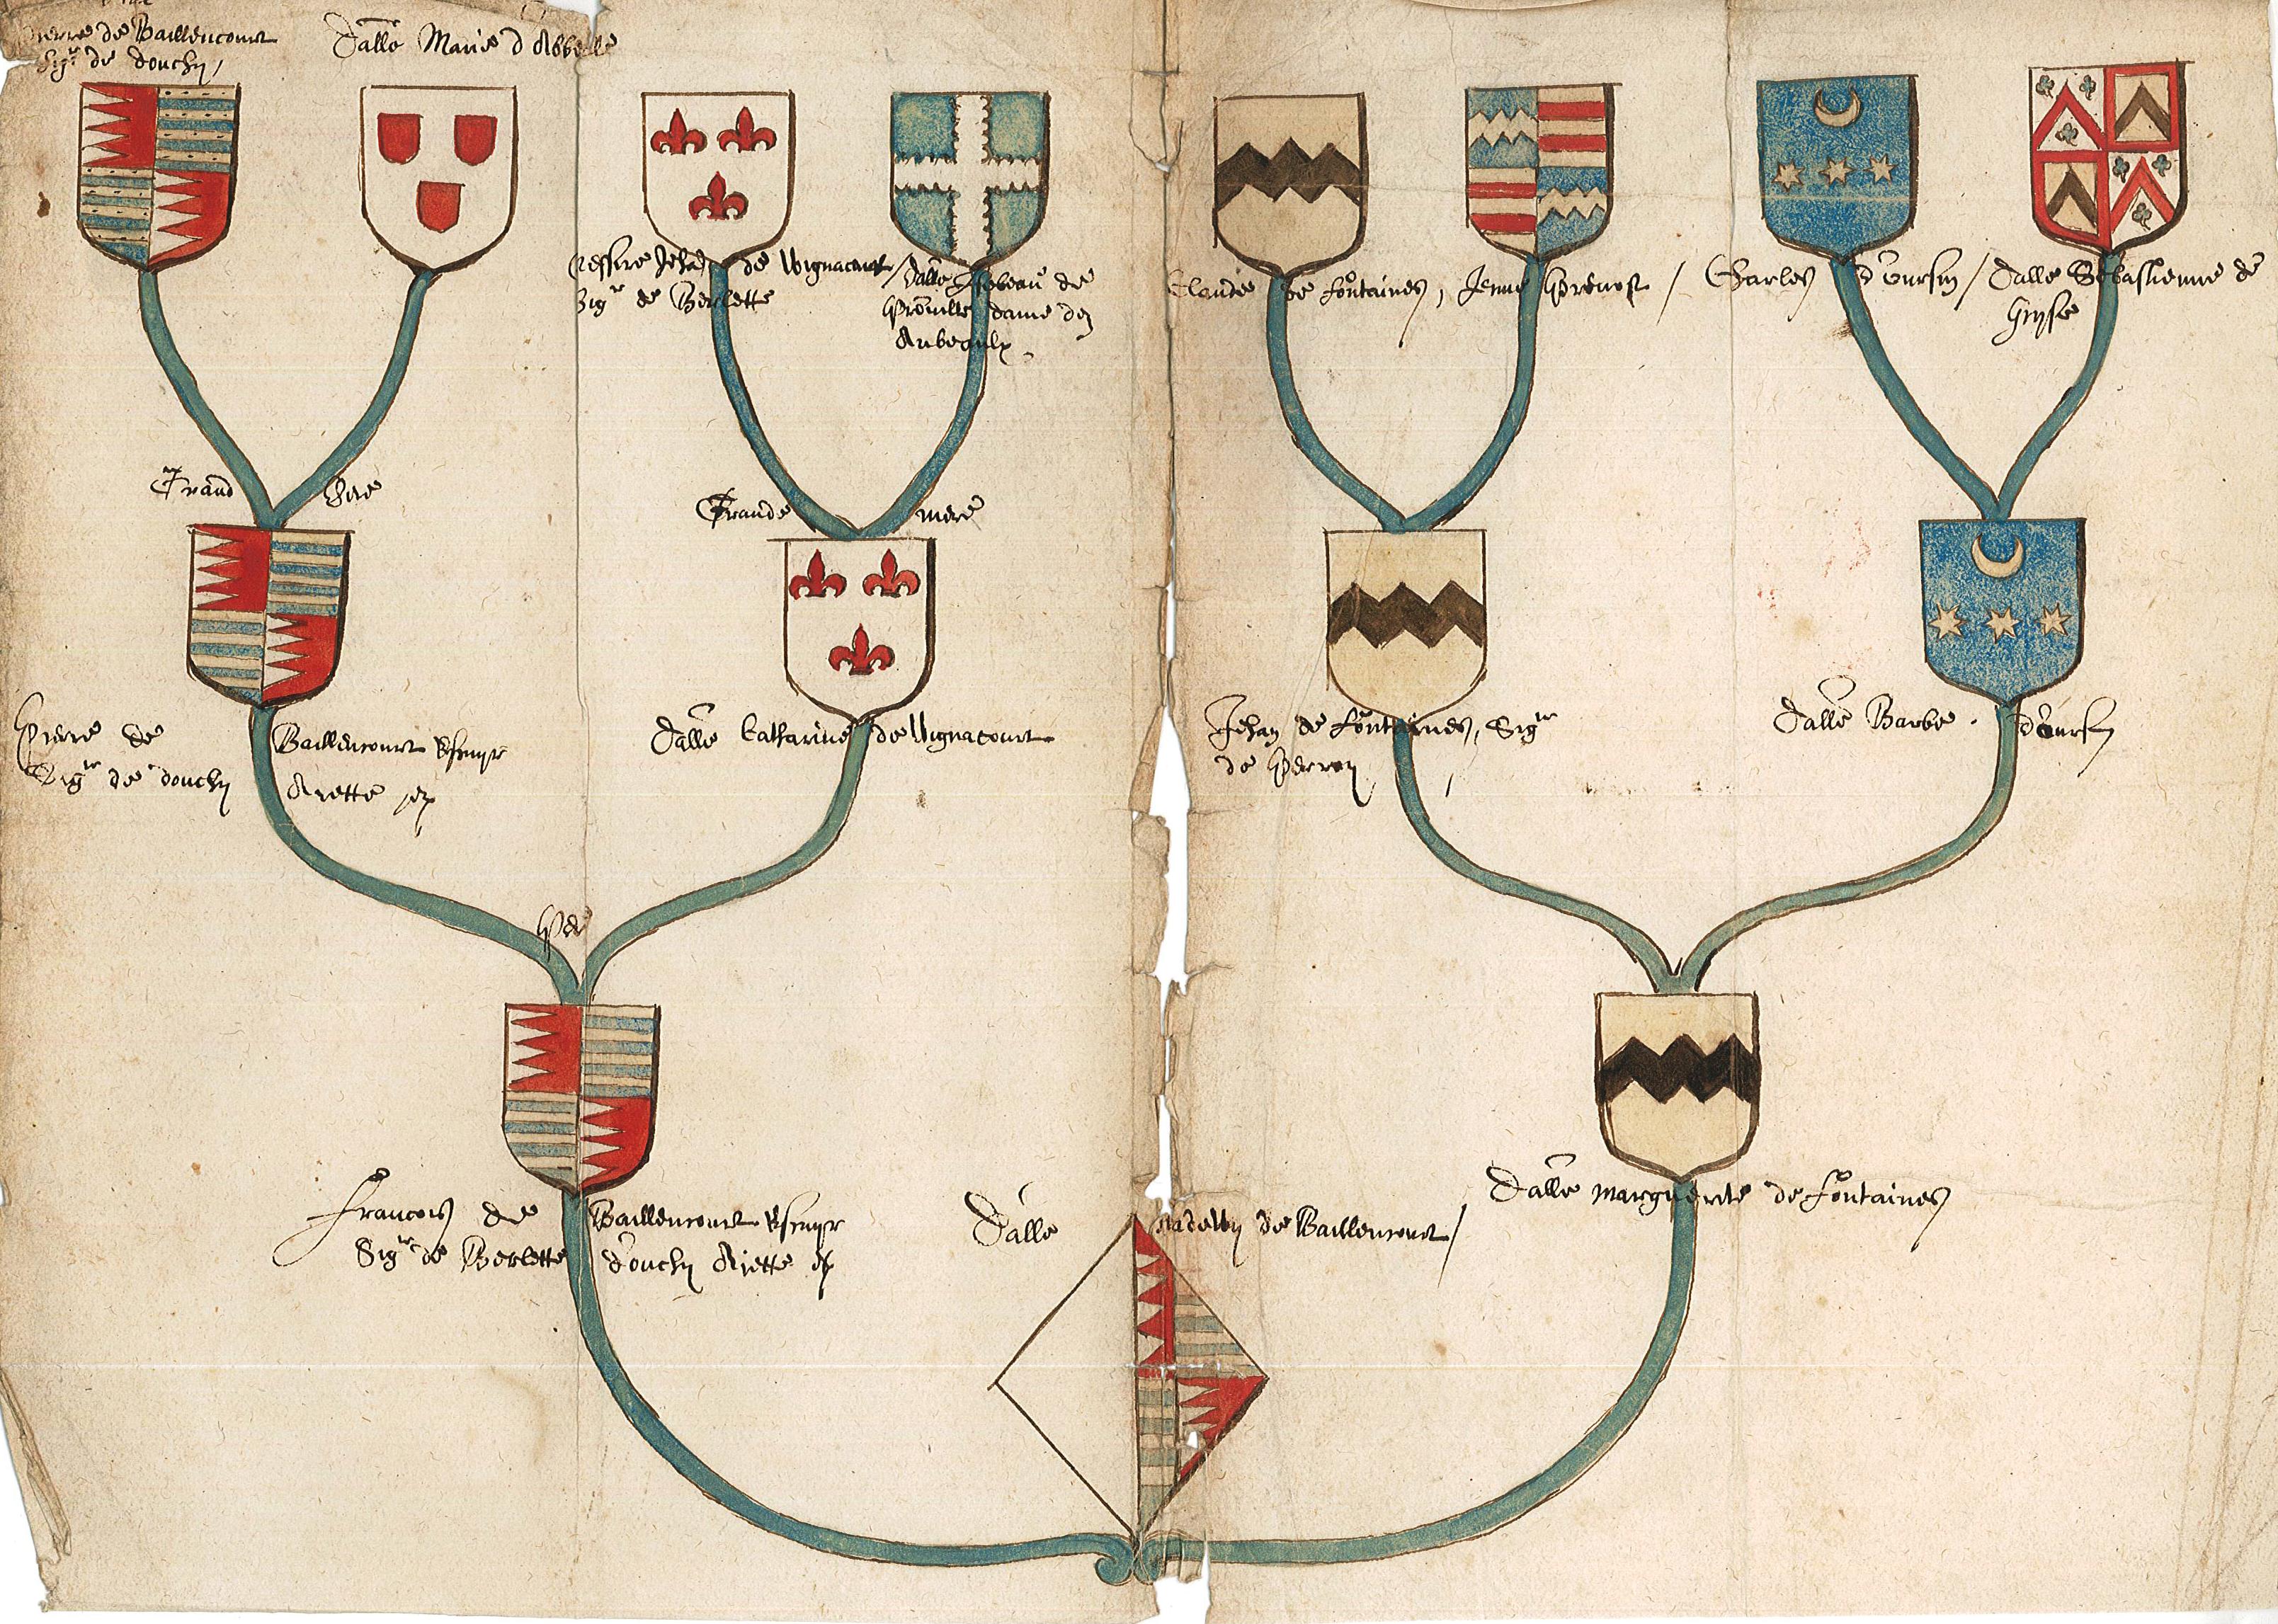 Pierre de Baillencourt
Sigr de douchy,
Dalle Marie d Abbelle
Messire Jehan de Wignacourt /
Sigr de Berlette
Dalle Isabeau de
Pronville dame dez
Aubeaulx.
Claude de Fontaines, Jenne Prevost /
Charles d'oursin /
Dalle Sebastienne de
Gryse
Grand Pere
Grande mere
Pierre de Baillencourt
Sigr de douchy Aiette
Dalle Catharine de Wignacourt
Jehan de Fontaines, Sigr
de Perron
Dalle Barbe d'oursin
Pere
Francois de Baillencourt
Sigr de Berlette douchy Aiette
Dalle de Baillencourt /
Dalle marguerite de Fontaines